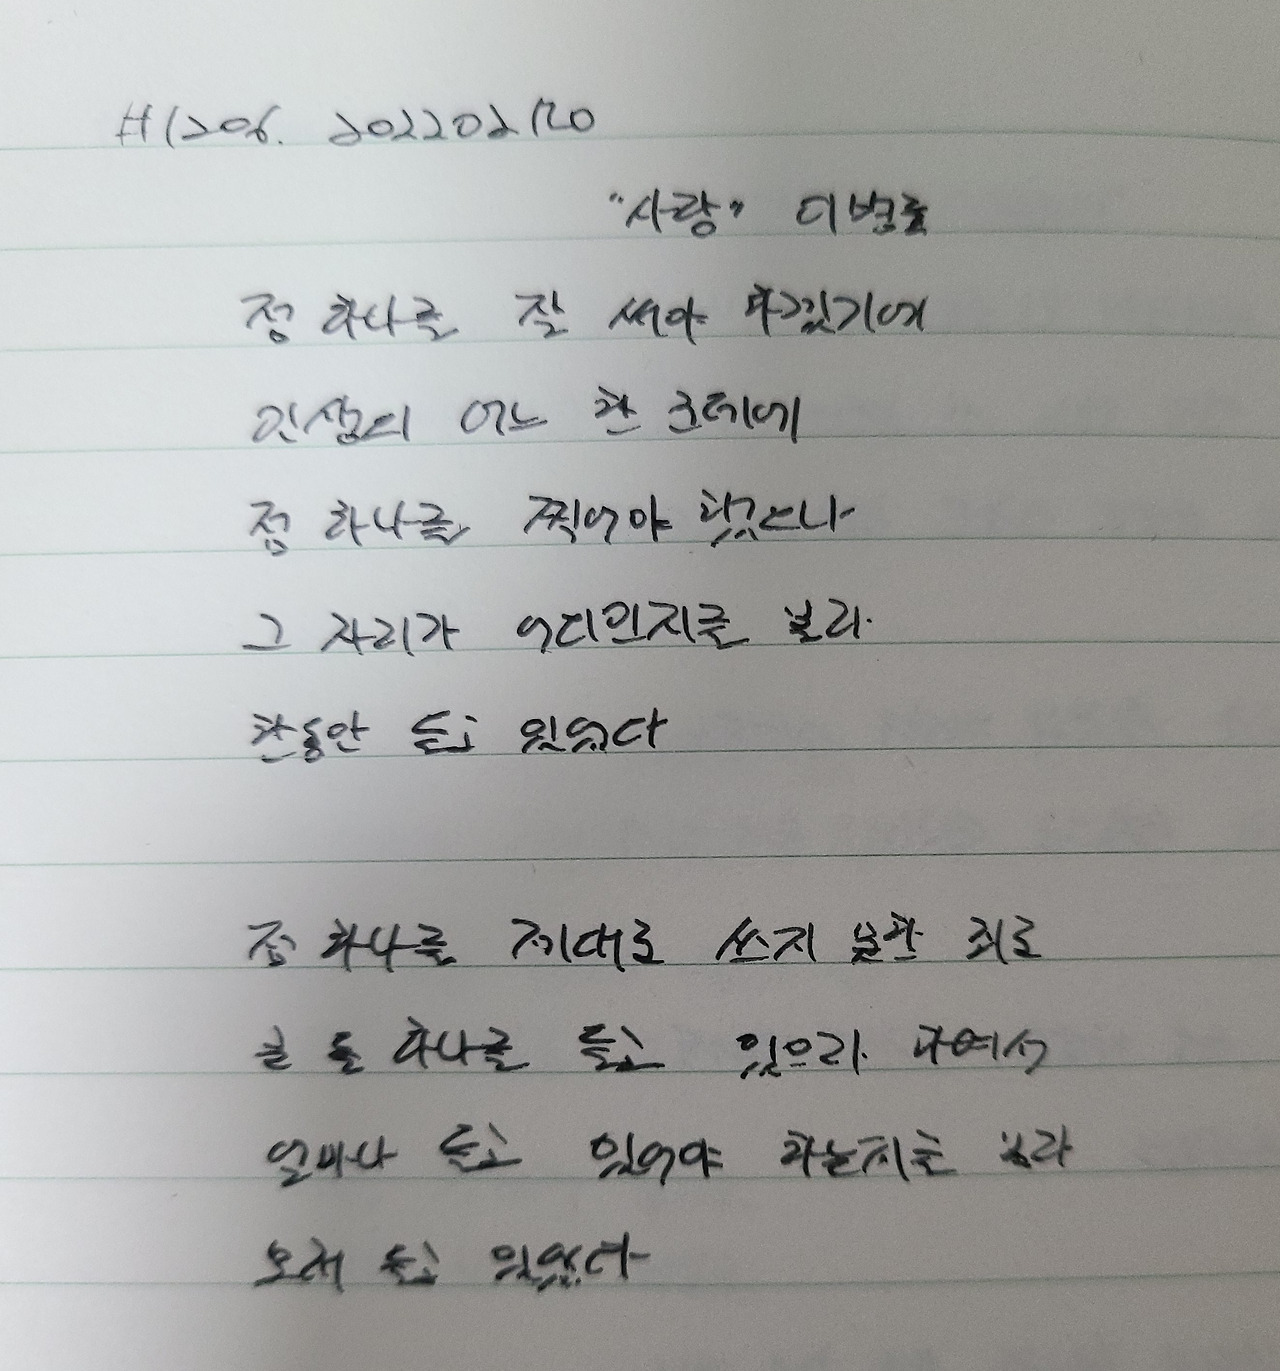 #1206. 202202120
"사랑" 이병률
점 하나를 잘 써야 하겠기에
인생의 어느 한 코너에
점 하나를 찍어야 했으나
그 자리가 어디인지를 몰라
한동안 들고 있었다
점 하나를 제대로 쓰지 못한 죄로
큰 돌 하나를 들고 있으라 하여서
얼마나 들고 있어야 하는지를 몰라
오래 들고 있었다